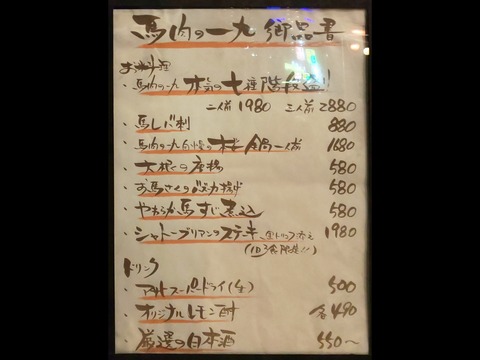 馬肉の一九 御品書
お料理
・馬肉の一九 本気の七種階段盛!!
二人前 1980 三人前 2880
・馬レバ刺 880
・馬肉の一九自慢の桜鍋 一人前 1680
・大根の唐揚 580
・お馬さくの 揚げ 580
・やわらか馬すじ煮込 580
・シャトーブリアンのステーキ 1980
(1日3食限定!!)
ドリンク
・アサヒスーパードライ(生) 500
・オリジナルレモン酎 各490
・厳選の日本酒 550〜